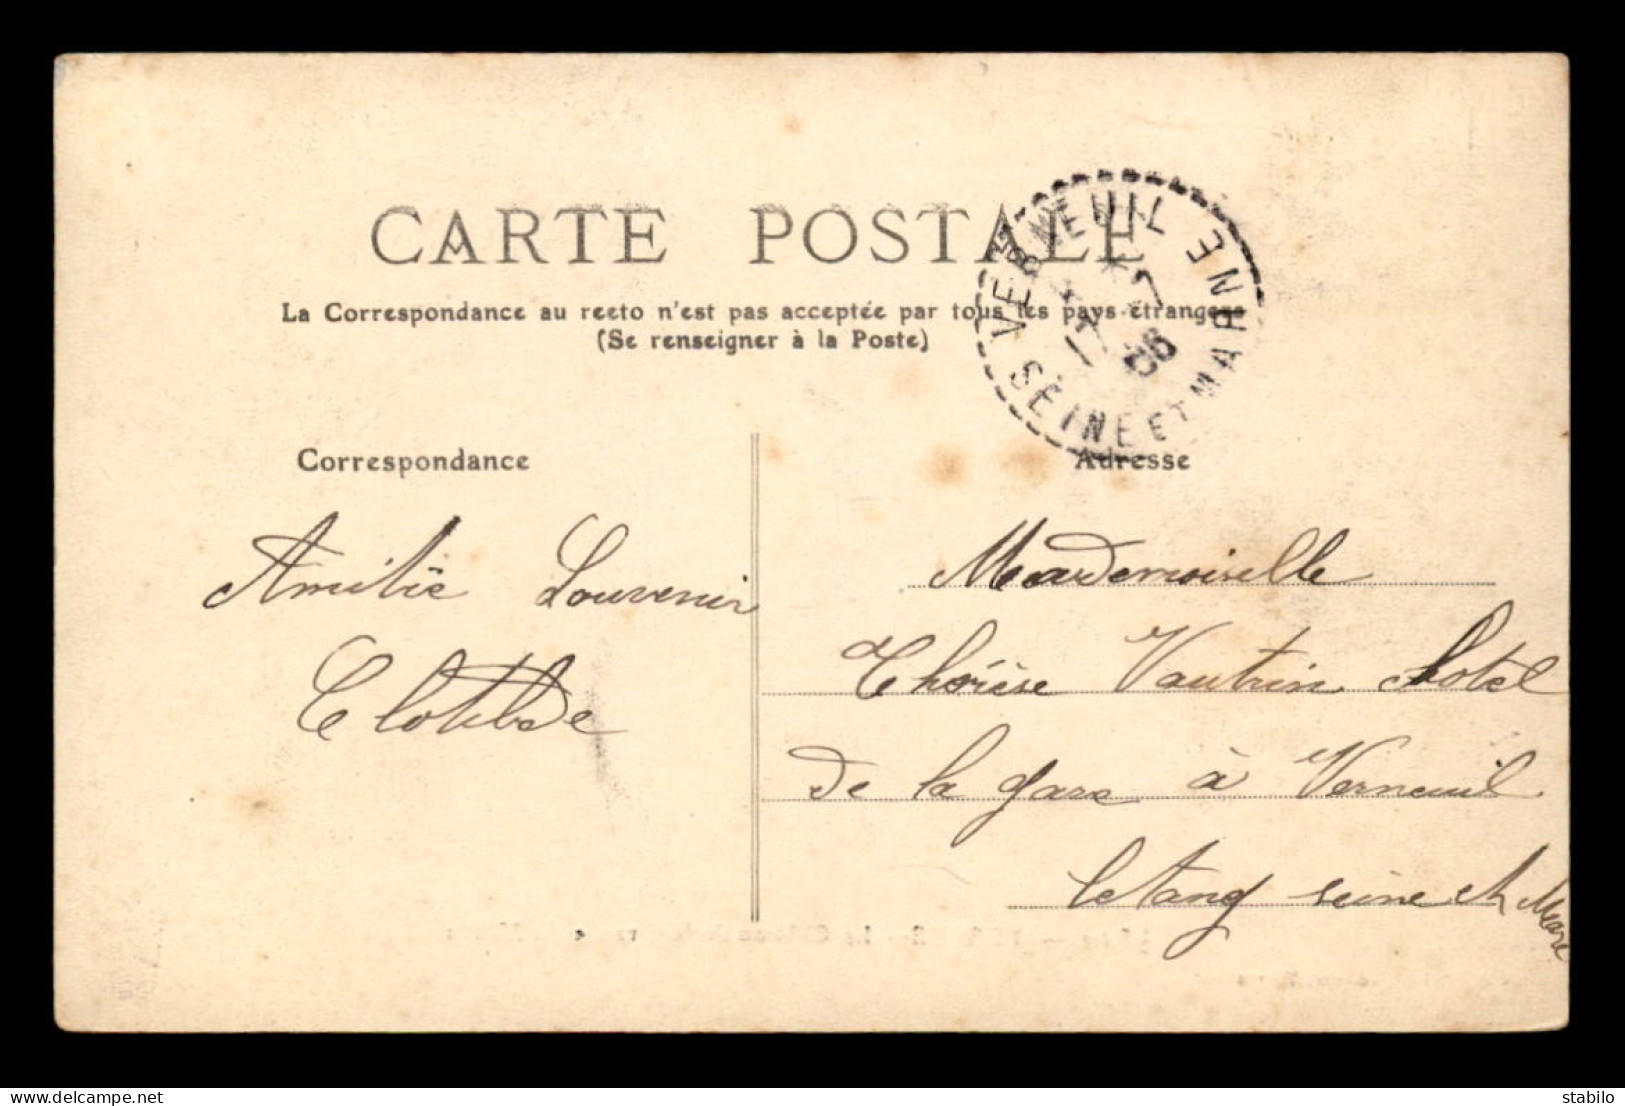 CARTE POSTALE
La Correspondance au recto n'est pas acceptée par tous les pays étrangers
(Se renseigner à la Poste)
VERNEUIL
SEINE ET MARNE
Correspondance
Adresse
Amitié Souvenir
Clotilde
Mademoiselle
Thérèse Vautrin hotel
de la gare à Verneuil
letang seine et Marne
www.delcampe.net
stabilo